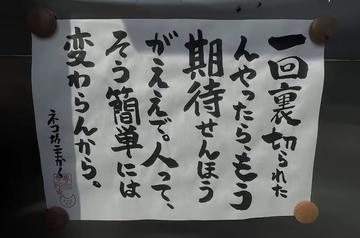 一回裏切られた
んやったら、もう
期待せんほう
がええで。人って、
そう簡単には
変わらんから。
ネコ坊主から